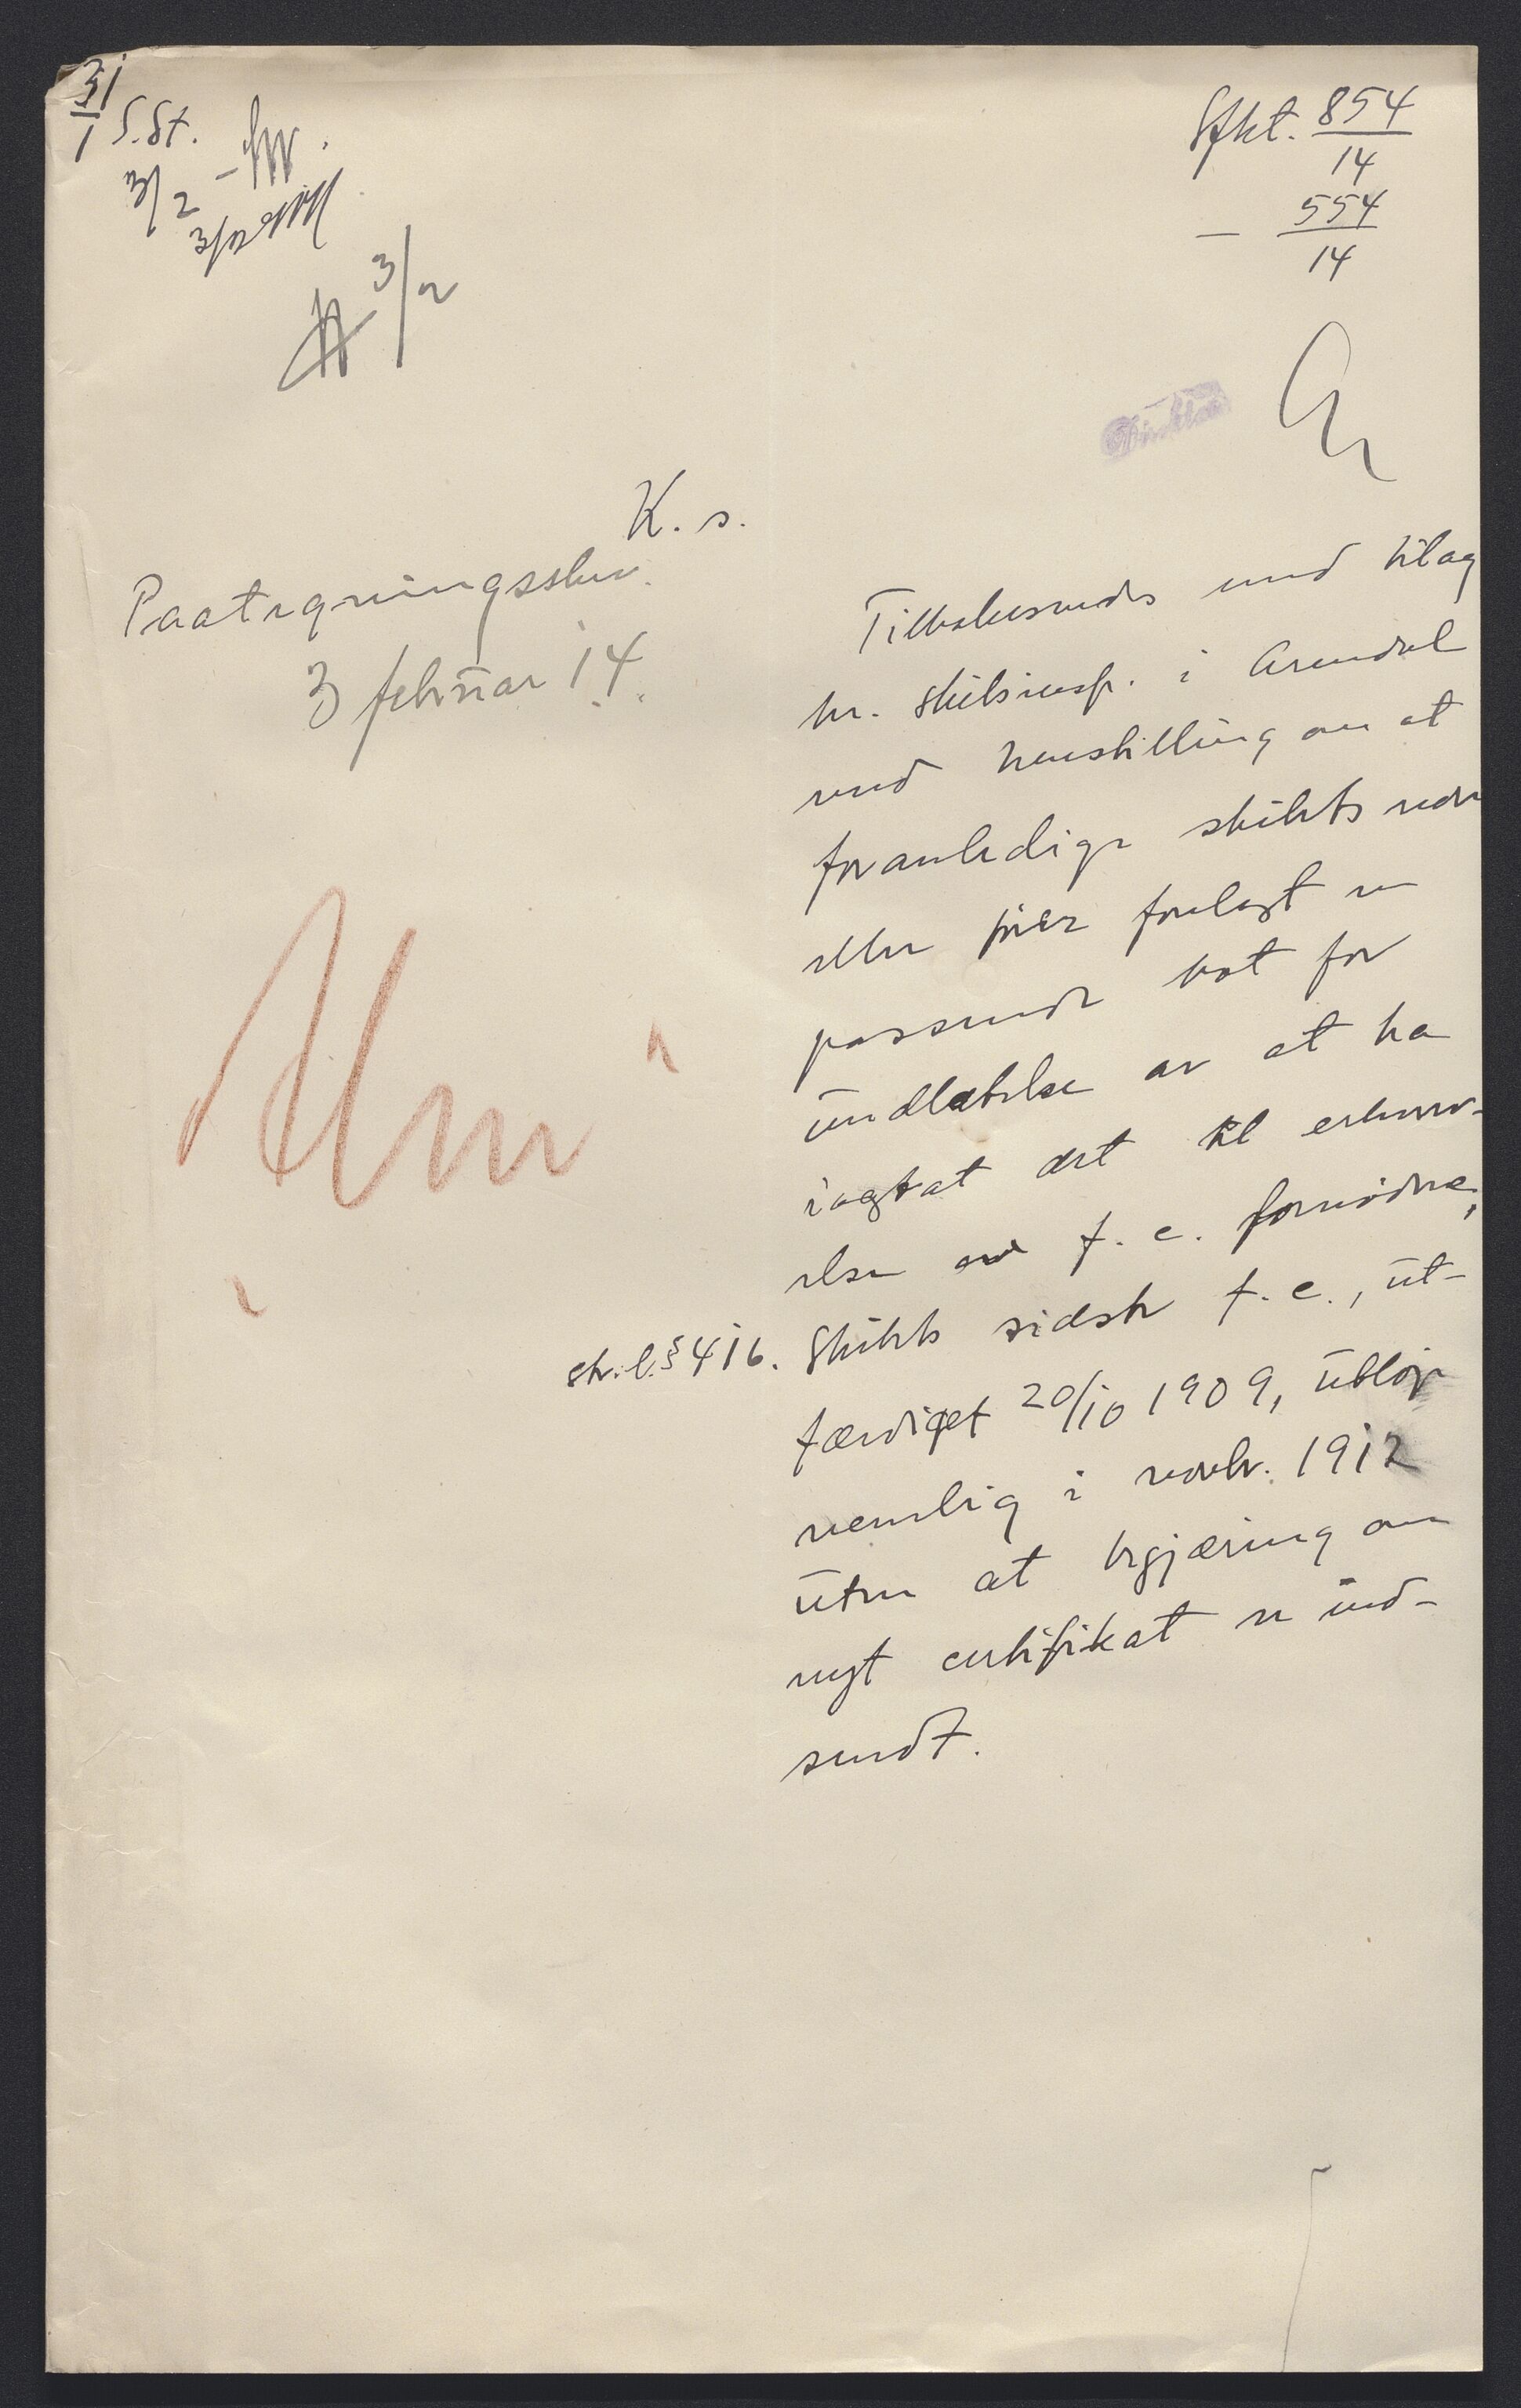 31/1 S.St.
3/2
3/2
Sfkt. 854/14
— 554/14
K. s.
Paategningsskr.
3 februar 14.
Tilbakesendes med bilag
hr. skibsinsp. i Arendal
med henstilling om at
foranledige skibets reder
eller fører forelagt en
passende bot for
undlatelse av at ha
iagtat det til erhverv-
else av f. c. fornødne,
str.l. § 416. Skibets sidste f. c., ut-
færdiget 20/10 1909, utløp
nemlig i novbr. 1912
uten at begjæring om
nyt certifikat er ind-
sendt.